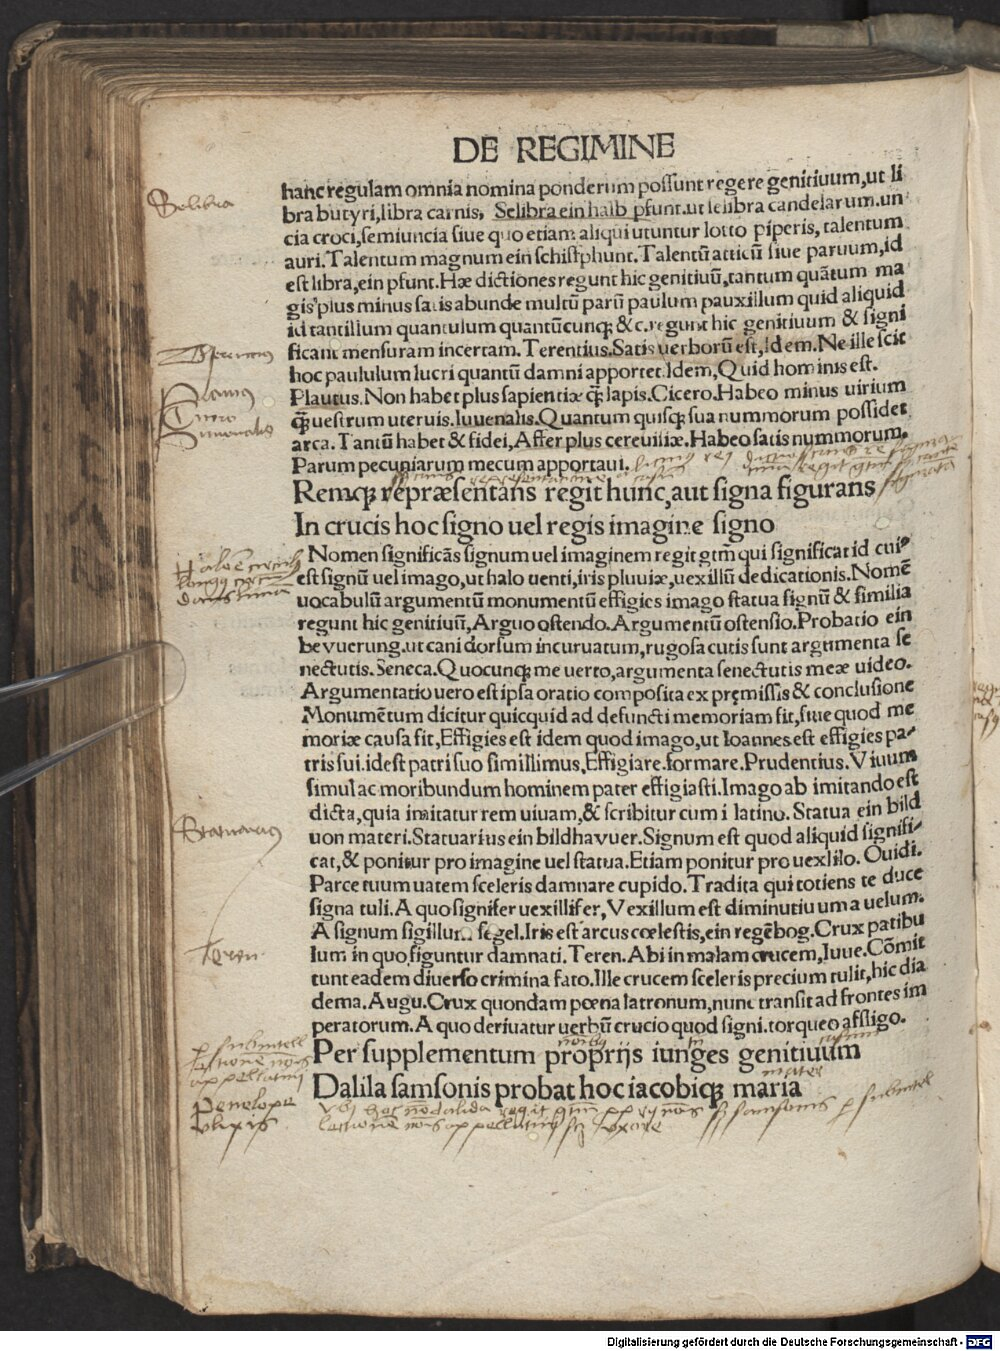 DE REGIMINE
hanc regulam omnia nomina ponderum possunt regere genitiuum,ut li
bra butyri,libra carnis, Selibra ein halb pfunt.ut selibra candelarum.un
cia croci,semiuncia siue quo etiam aliqui utuntur lotto piperis, talentum
auri.Talentum magnum ein schistphunt.Talentū atticū siue paruum,id
est libra,ein pfunt.Hæ dictiones regunt hic genitiuū,tantum quātum ma
gis plus minus satis abunde multū parū paulum pauxillum quid aliquid
id tantillum quantulum quantūcunqꝫ &c.regunt hic genitiuum & signi
ficant mensuram incertam. Terentius.Satis uerborū est,Idem.Ne ille scit
hoc paululum lucri quantū damni apportet Idem,Quid hominis est.
Plautus.Non habet plus sapientiæ qꝫ lapis.Cicero.Habeo minus uirium
qꝫ uestrum uteruis.Iuuenalis.Quantum quisqꝫ sua nummorum possidet
arca. Tantū habet & fidei,Affer plus cereuisiæ.Habeo satis nummorum.
Parum pecuniarum mecum apportaui.
Remqꝫ repræsentans regit hunc,aut signa figurans
In crucis hoc signo uel regis imagine signo
Nomen significās signum uel imaginem regit gtm̄ qui significat id cui⁹
est signū uel imago,ut halo uenti,iris pluuiæ,uexillū dedicationis.Nomē
uocabulū argumentū monumentū effigies imago statua signū & similia
regunt hic genitiuū,Arguo ostendo.Argumentū ostensio.Probatio ein
bevuerung.ut cani dorsum incuruatum,rugosa cutis sunt argumenta se
nectutis. Seneca.Quocunqꝫ me uerto,argumenta senectutis meæ uideo.
Argumentatio uero est ipsa oratio composita ex pręmissis & conclusione
Monumētum dicitur quicquid ad defuncti memoriam fit,siue quod me
moriæ causa fit,Effigies est idem quod imago,ut Ioannes est effigies pa-
tris sui.idest patri suo simillimus,Effigiare.formare.Prudentius.Viuum
simul ac moribundum hominem pater effigiasti.Imago ab imitando est
dicta,quia imitatur rem uiuam,& scribitur cum i latino. Statua ein bild
uon materi.Statuarius ein bildhavuer.Signum est quod aliquid signifi-
cat,& ponitur pro imagine uel statua.Etiam ponitur pro uexlilo. Ouidi.
Parce tuum uatem sceleris damnare cupido.Tradita qui totiens te duce
signa tuli.A quo signifer uexillifer,Vexillum est diminutiuum a uelum.
A signum sigillum segel.Iris est arcus cœlestis,ein regēbog.Crux patibu
lum in quo figuntur damnati. Teren.Abi in malam crucem,Iuue.Cōmit
tunt eadem diuerso crimina fato.Ille crucem sceleris precium tulit,hic dia
dema.Augu.Crux quondam pœna latronum,nunc transit ad frontes im
peratorum.A quo deriuatur uerbū crucio quod signi.torqueo affligo.
Per supplementum proprijs iunges genitiuum
Dalila samsonis probat hoc iacobiqꝫ maria
Selibra
Terentius
Plautus
Cicero
Iuuenalis
Statuarius
Teren
mater
Penelope
vlixis
Digitalisierung gefördert durch die Deutsche Forschungsgemeinschaft - DFG